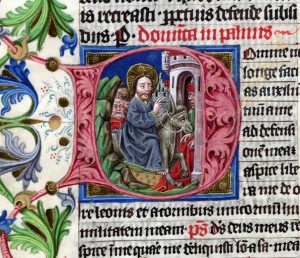 us recreasti defende subsi
dijs P Dominica in palmis
Omine ne
longe faci
as auxiliu
tuum a me
ad defensi
onem mea
aspice libe
ra me de o
re leonis et a cornibus unicornuu hu
militatem meam ps ds deus meus re
spice ime me dereliquisti